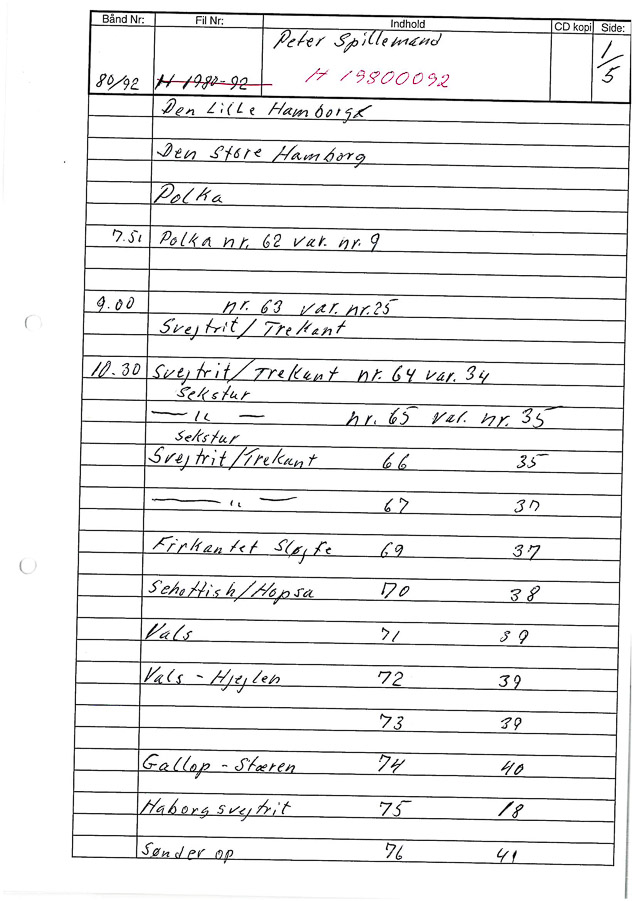 Bånd Nr: Fil Nr: Indhold CD kopi Side:
Peter Spillemand
80/92 H 1980-92 H 19800092 1/5
Den Lille Hamborgk
Den Store Hamborg
Polka
7.51 Polka nr. 62 var. nr. 9
9.00 nr. 63 var. nr. 25
Svejtrit/Trekant
10.30 Svejtrit/Trekant nr. 64 var. 34
Sekstur
— " — nr. 65 var. nr. 35
Sekstur
Svejtrit/Trekant 66 35
— " — 67 37
Firkantet Sløjfe 69 37
Schottish/Hopsa 70 38
Vals 71 39
Vals - Hjejlen 72 39
73 39
Gallop - Stæren 74 40
Haborgsvejtrit 75 18
Sønder op 76 41